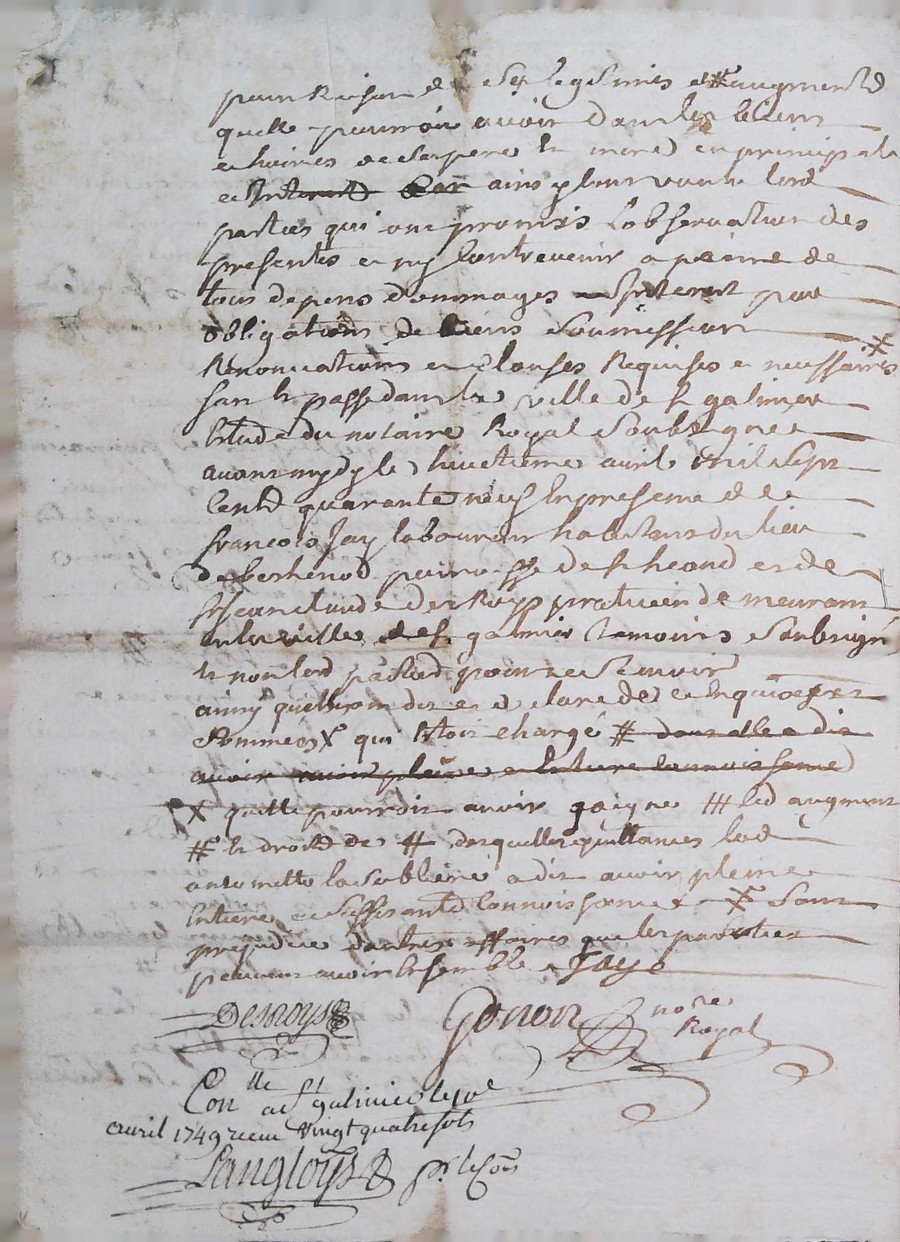 pour Raison de ses legitimes et # augment
quelle pourroit avoir dans les biens
et hoiries de ses pere et mere en principal
et ainsy
parties qui ont promis l'observation des
presentes et ny contrevenir a peine de
tous depens dommages Interest par
obligations de biens soumission
Renonciations et clauses Requises et necessaires X
fait et passé dans la ville de St galmier
Etude du notaire Royal soubsigné
avant mydy le huictieme avril mil sept
cent quarante neuf En presence de
françois Jay laboureur habitant du lieu
de paroisse de St et de
Sr Jean claude desRoys praticien demeurant
en la ville de St galmier temoins soubsigné
et non les parties pour ne scavoir
ainsy quelles ont dit et declaré de ce Enquises et
sommées X qui Etoit chargé # dont elle a dit
avoir avoir pleine et Entiere connoissance
X quelle pourroit avoir gaigné ### led augment
# et droits de # desquelles quittances lad
antoinette la sabliere a dit avoir pleine
Entiere et suffisante connoissance X Sans
prejudice dautres affaires que les parties
peuvent avoir Ensemble Jay
Desroys
Gonon nore
Royal
Conlle a St galmier le
avril 1749 receu vingt quatre sols
Langloys pr le Cons